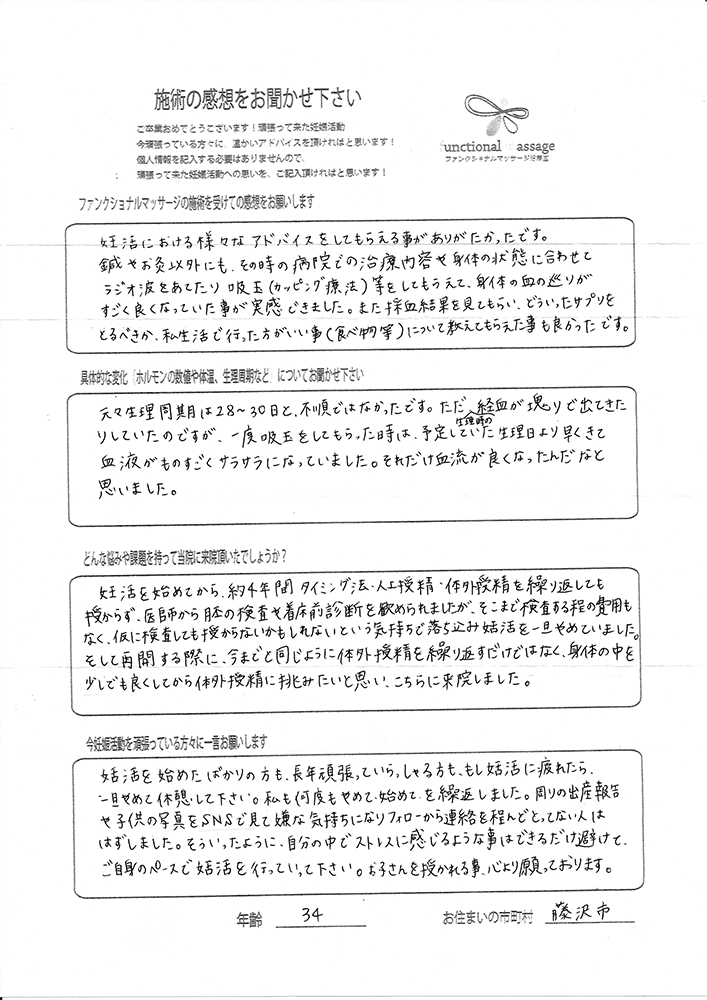 施術の感想をお聞かせ下さい
ご卒業おめでとうございます！頑張って来た妊娠活動
今頑張っている方々に、温かいアドバイスを頂ければと思います！
個人情報を記入する必要はありませんので、
： 頑張って来た妊娠活動への思いを、ご記入頂ければと思います！
functional massage
ファンクショナルマッサージ治療室
ファンクショナルマッサージの施術を受けての感想をお願いします
妊活における様々なアドバイスをしてもらえる事がありがたかったです。
鍼やお灸以外にも、その時の病院での治療内容や身体の状態に合わせて
ラジオ波をあてたり 吸玉(カッピング療法)等をしてもらえて、身体の血の巡りが
すごく良くなっていた事が実感できました。また採血結果を見てもらい、どういったサプリを
とるべきか、私生活で行った方がいい事(食べ物等)について教えてもらえた事も良かったです。
具体的な変化（ホルモンの数値や体温、生理周期など）についてお聞かせ下さい
元々生理周期は28～30日と、不順ではなかったです。ただ、生理時の経血が塊りで出てきた
りしていたのですが、一度吸玉をしてもらった時は、予定していた生理日より早くきて
血液がものすごくサラサラになっていました。それだけ血流が良くなったんだなと
思いました。
どんな悩みや課題を持って当院に来院頂いたでしょうか？
妊活を始めてから、約4年間 タイミング法・人工授精・体外授精を繰り返しても
授からず、医師から胚の検査や着床前診断を勧められましたが、そこまで検査する程の費用も
なく、仮に検査しても授からないかもしれないという気持ちで落ち込み妊活を一旦やめていました。
そして再開する際に、今までと同じように体外授精を繰り返すだけではなく、身体の中を
少しでも良くしてから体外授精に挑みたいと思い、こちらに来院しました。
今妊娠活動を頑張っている方々に一言お願いします
妊活を始めたばかりの方も、長年頑張っていらっしゃる方も、もし妊活に疲れたら、
一旦やめて休憩して下さい。私も何度もやめて・始めてを繰返しました。周りの出産報告
や子供の写真をSNSで見て嫌な気持ちになりフォローから連絡を程んどとってない人は
はずしました。そういったように、自分の中でストレスに感じるような事はできるだけ避けて、
ご自身のペースで妊活を行っていって下さい。お子さんを授かれる事、心より願っております。
年齢 34 お住まいの市町村 藤沢市